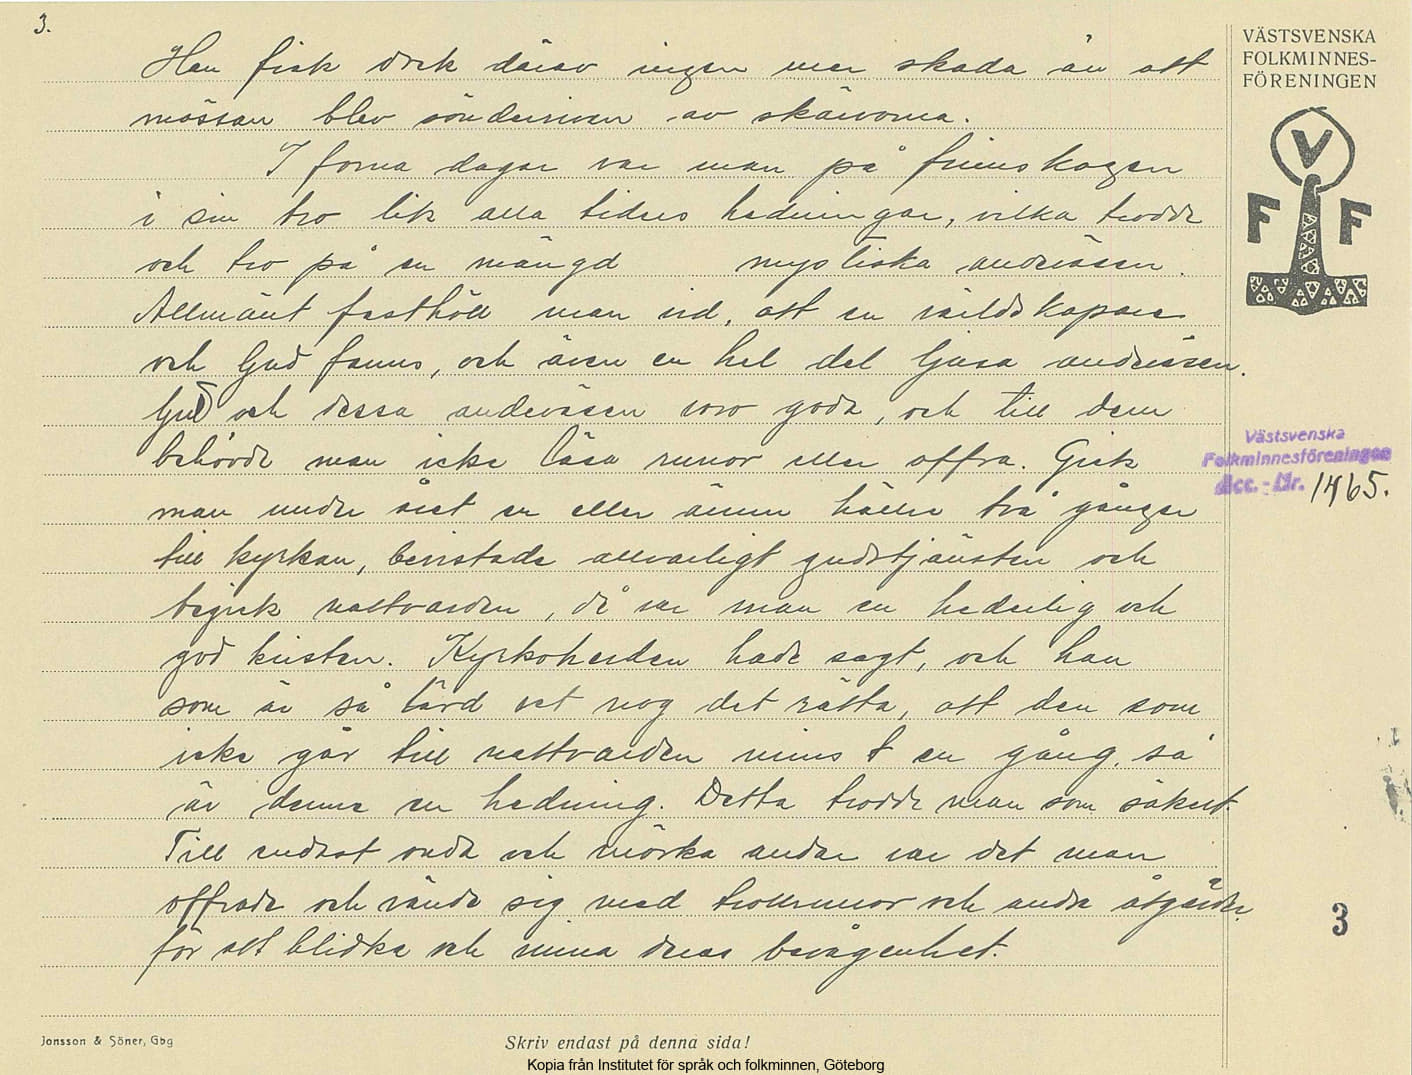 3.
VÄSTSVENSKA
FOLKMINNES-
FÖRENINGEN
V
F F
Han fick dock därav ingen mer skada än att
mössan blev sönderriven av skärvorna.
I forna dagar var man på finnskogen
i sin tro lik alla tiders hedningar, vilka trodde
och tro på en mängd mystiska andeväsen.
Allmänt fasthöll man vid, att en världsskapare
och Gud fanns, och även en hel del ljusa andeväsen.
Gud och dessa andeväsen voro goda, och till dem
behövde man icke läsa runor eller offra. Gick
man under året en eller ännu hällre två gånger
till kyrkan, bevistade allvarligt gudstjänsten och
begick nattvarden, då var man en hederlig och
god kristen. Kyrkoherden hade sagt, och han
som är så lärd vet nog det rätta, att den som
icke går till nattvarden minst en gång, så
är denne en hedning. Detta trodde man som säkert.
Till endast onda och mörka andar var det man
offrade och vände sig med trollrunor och andra åtgärder
för att blidka och vinna deras bevågenhet.
Västsvenska
Folkminnesföreningen
Acc. - Nr. 1465.
3
Jonsson & Söner, Gbg
Skriv endast på denna sida!
Kopia från Institutet för språk och folkminnen, Göteborg